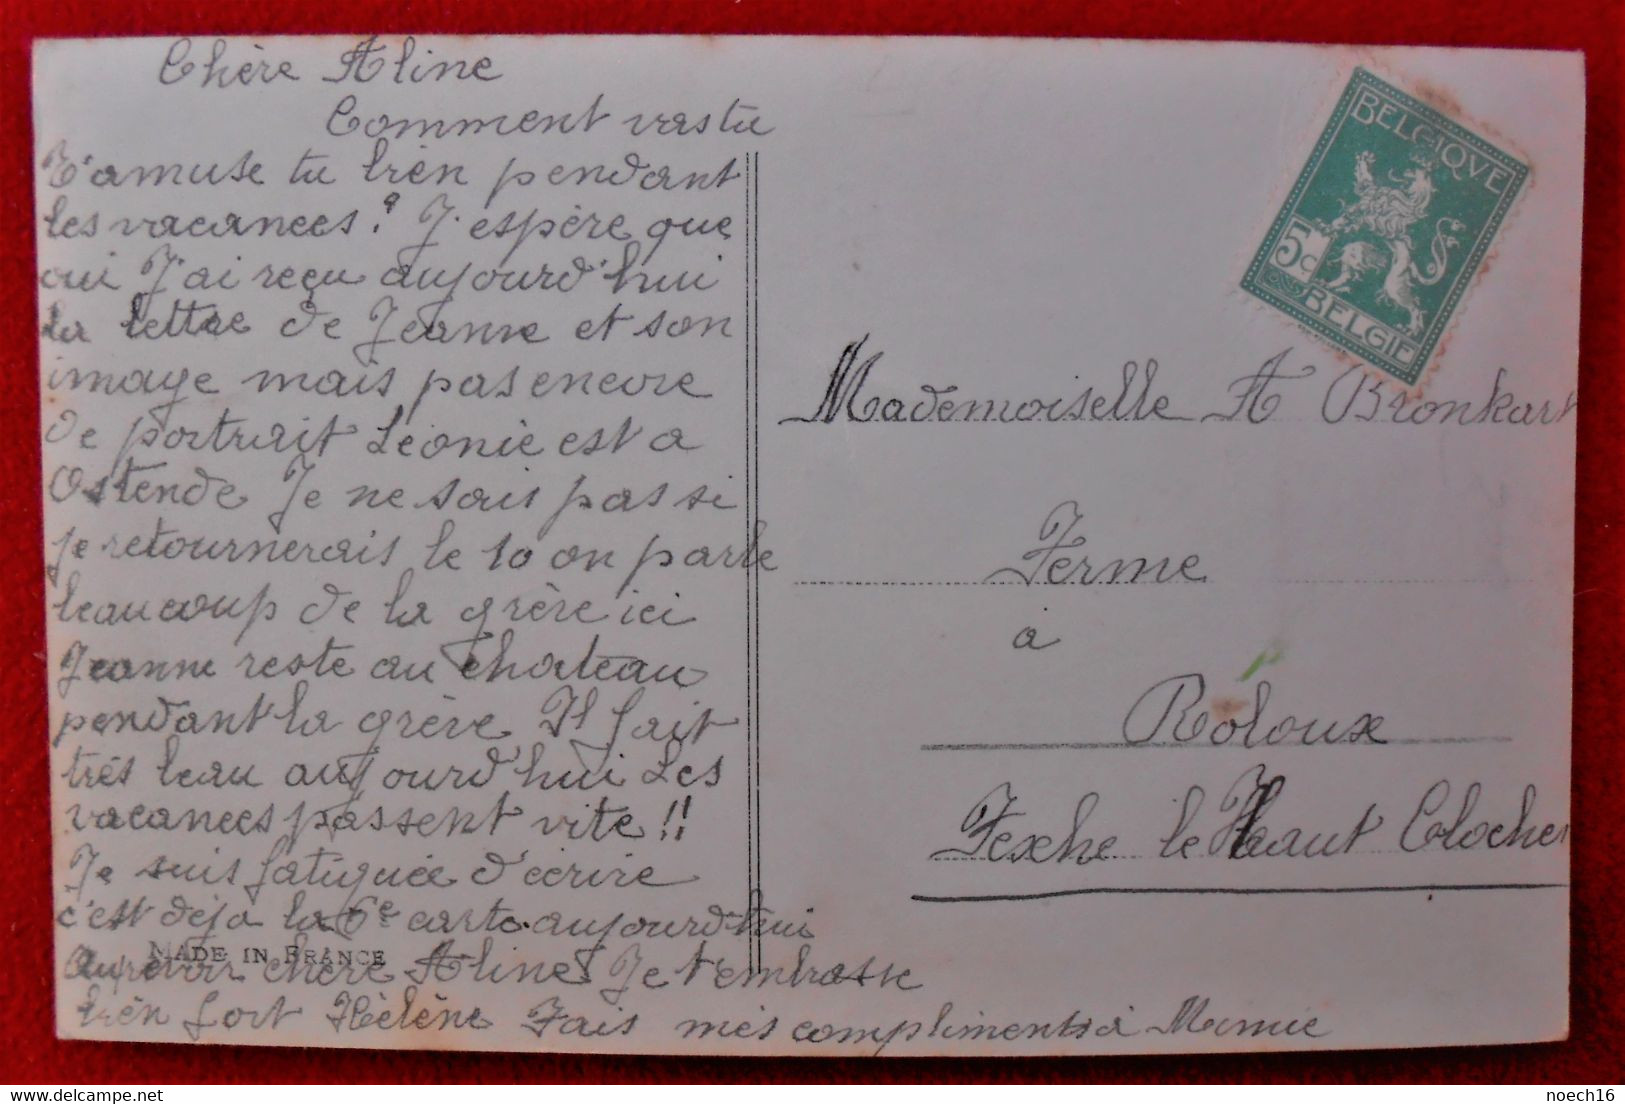 Chère Aline
Comment vas tu
T'amuse tu bièn pendant
les vacances? J'espère que
oui J'ai reçu aujourd'hui
la lettre de Jeanne et son
image mais pas encore
de portrait Léonie est a
Ostende Je ne sais pas si
je retournerais le 10 on parle
beaucoup de la grève ici
Jeanne reste au chateau
pendant la grève Il fait
très beau aujourd'hui Les
vacances passent vite!!
Je suis fatiguée d'écrire
c'est déja la 6e carte aujourd'hui
MADE IN FRANCE
Au revoir chère Aline Je t'embrasse
bièn fort Hélène Fais mes compliments à Mimie
BELGIQVE
5c
BELGIË
Mademoiselle A Bronkart
Ferme
à
Roloux
Fexhe le Haut Clocher
noech16